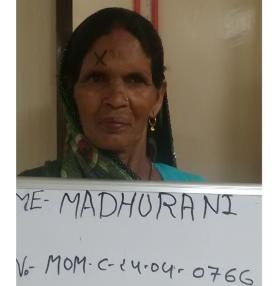 ME- MADHURANI
No- MOM-C-14-04-0766